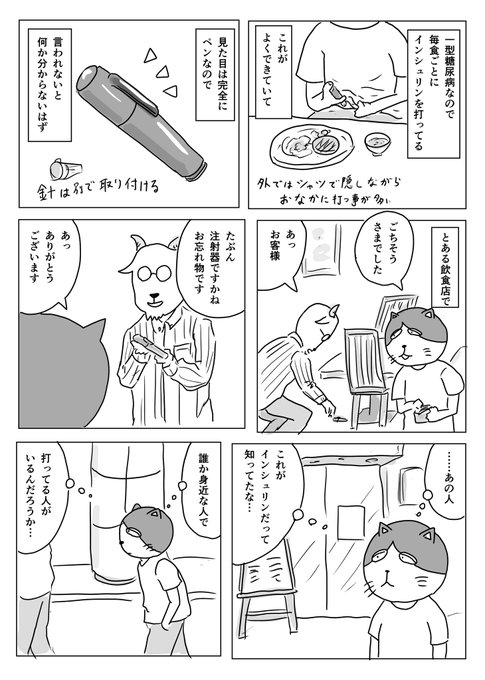 一型糖尿病なので
毎食ごとに
インシュリンを打ってる
これが
よくできていて
外ではシャツで隠しながら
おなかに打つ事が多い
見た目は完全に
ペンなので
言われないと
何か分からないはず
針は別で取り付ける
とある飲食店で
ごちそう
さまでした
あっ
お客様
たぶん
注射器ですかね
お忘れ物です
あっ
ありがとう
ございます
……あの人
これが
インシュリンだって
知ってたな…
誰か身近な人で
打ってる人が
いるんだろうか…